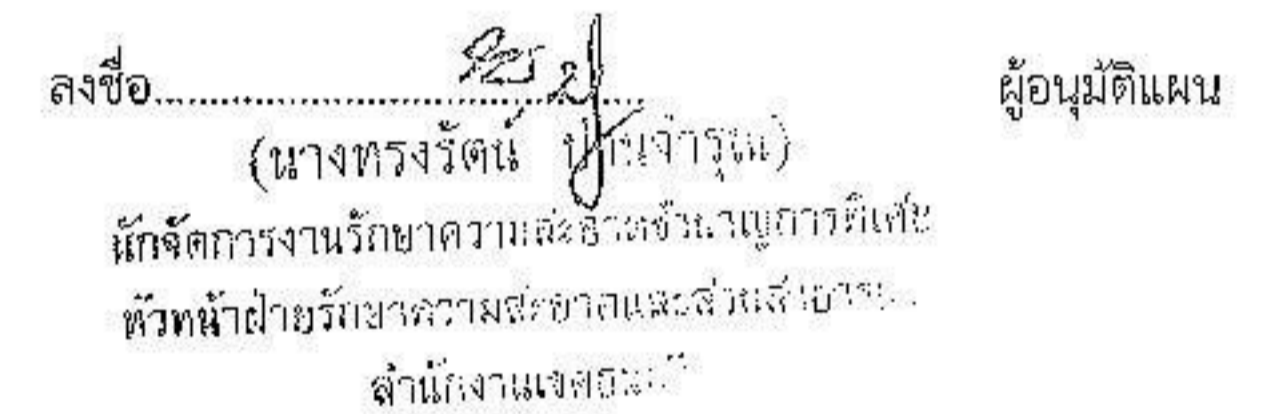 ลงชื่อ........................................................ ผู้อนุมัติแผน
(นางทรงรัตน์ ปานจำรูญ)
นักจัดการงานรักษาความสะอาดชำนาญการพิเศษ
หัวหน้าฝ่ายรักษาความสะอาดและสวนสาธารณะ
สำนักงานเขต